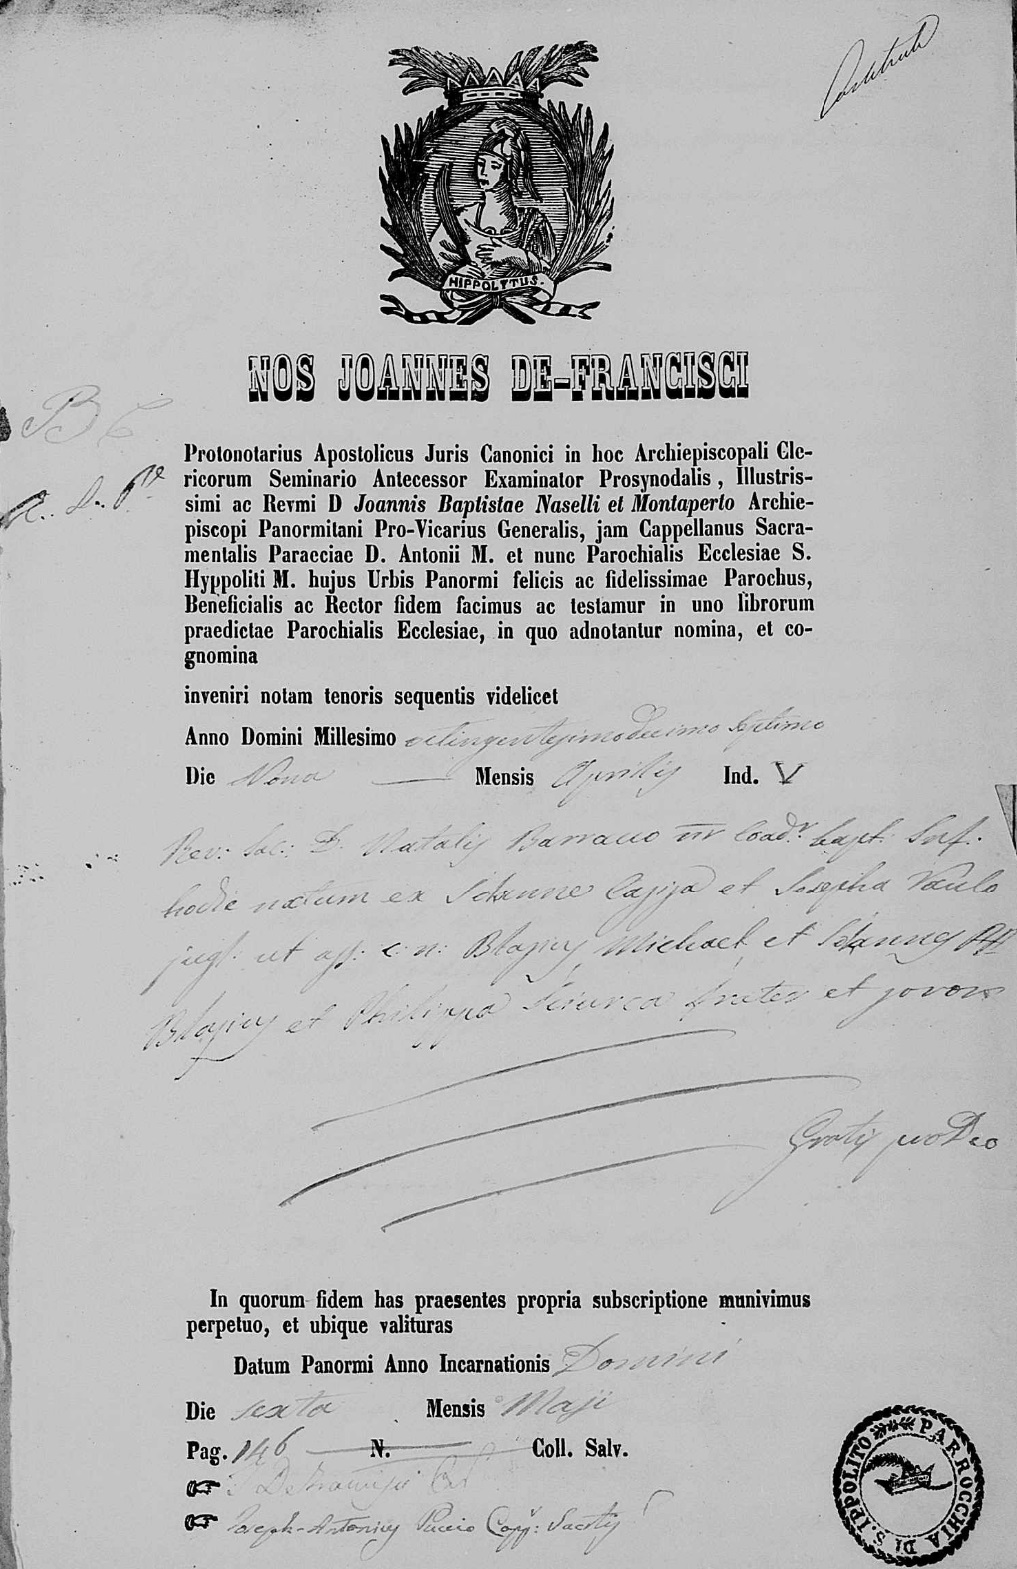 HIPPOLYTUS.
NOS JOANNES DE-FRANCISCI
Protonotarius Apostolicus Juris Canonici in hoc Archiepiscopali Cle-
ricorum Seminario Antecessor Examinator Prosynodalis, Illustris-
simi ac Revmi D Joannis Baptistae Naselli et Montaperto Archie-
piscopi Panormitani Pro-Vicarius Generalis, jam Cappellanus Sacra-
mentalis Paracciae D. Antonii M. et nunc Parochialis Ecclesiae S.
Hyppoliti M. hujus Urbis Panormi felicis ac fidelissimae Parochus,
Beneficialis ac Rector fidem facimus ac testamur in uno librorum
praedictae Parochialis Ecclesiae, in quo adnotantur nomina, et co-
gnomina
inveniri notam tenoris sequentis videlicet
Anno Domini Millesimo octingentesimo decimo septimo
Die Nona Mensis Aprilis Ind. V
Rev: Sac: D. Natalis Barraco Coad.r bapt: Inf:
hodie natum ex Joanne et Josepha
jugl: ut aff: c: n: Blasius Michael et Joannes PP
Blasius et Philippa Sciurca frater et soror
Gratis pro Deo
In quorum fidem has praesentes propria subscriptione munivimus
perpetuo, et ubique valituras
Datum Panormi Anno Incarnationis Domini
Die sexta Mensis Maji
Pag. 146 N. Coll. Salv.
Joseph-Antonius Puccio Capp:
PARROCCHIA DI S. IPPOLITO